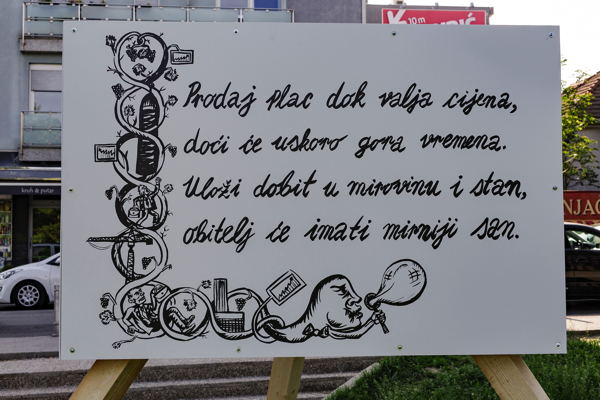 10 m
Prodaj plac dok valja cijena,
doći će uskoro gora vremena.
Uloži dobit u mirovinu i stan,
obitelj će imati mirniji san.
kruh & putar